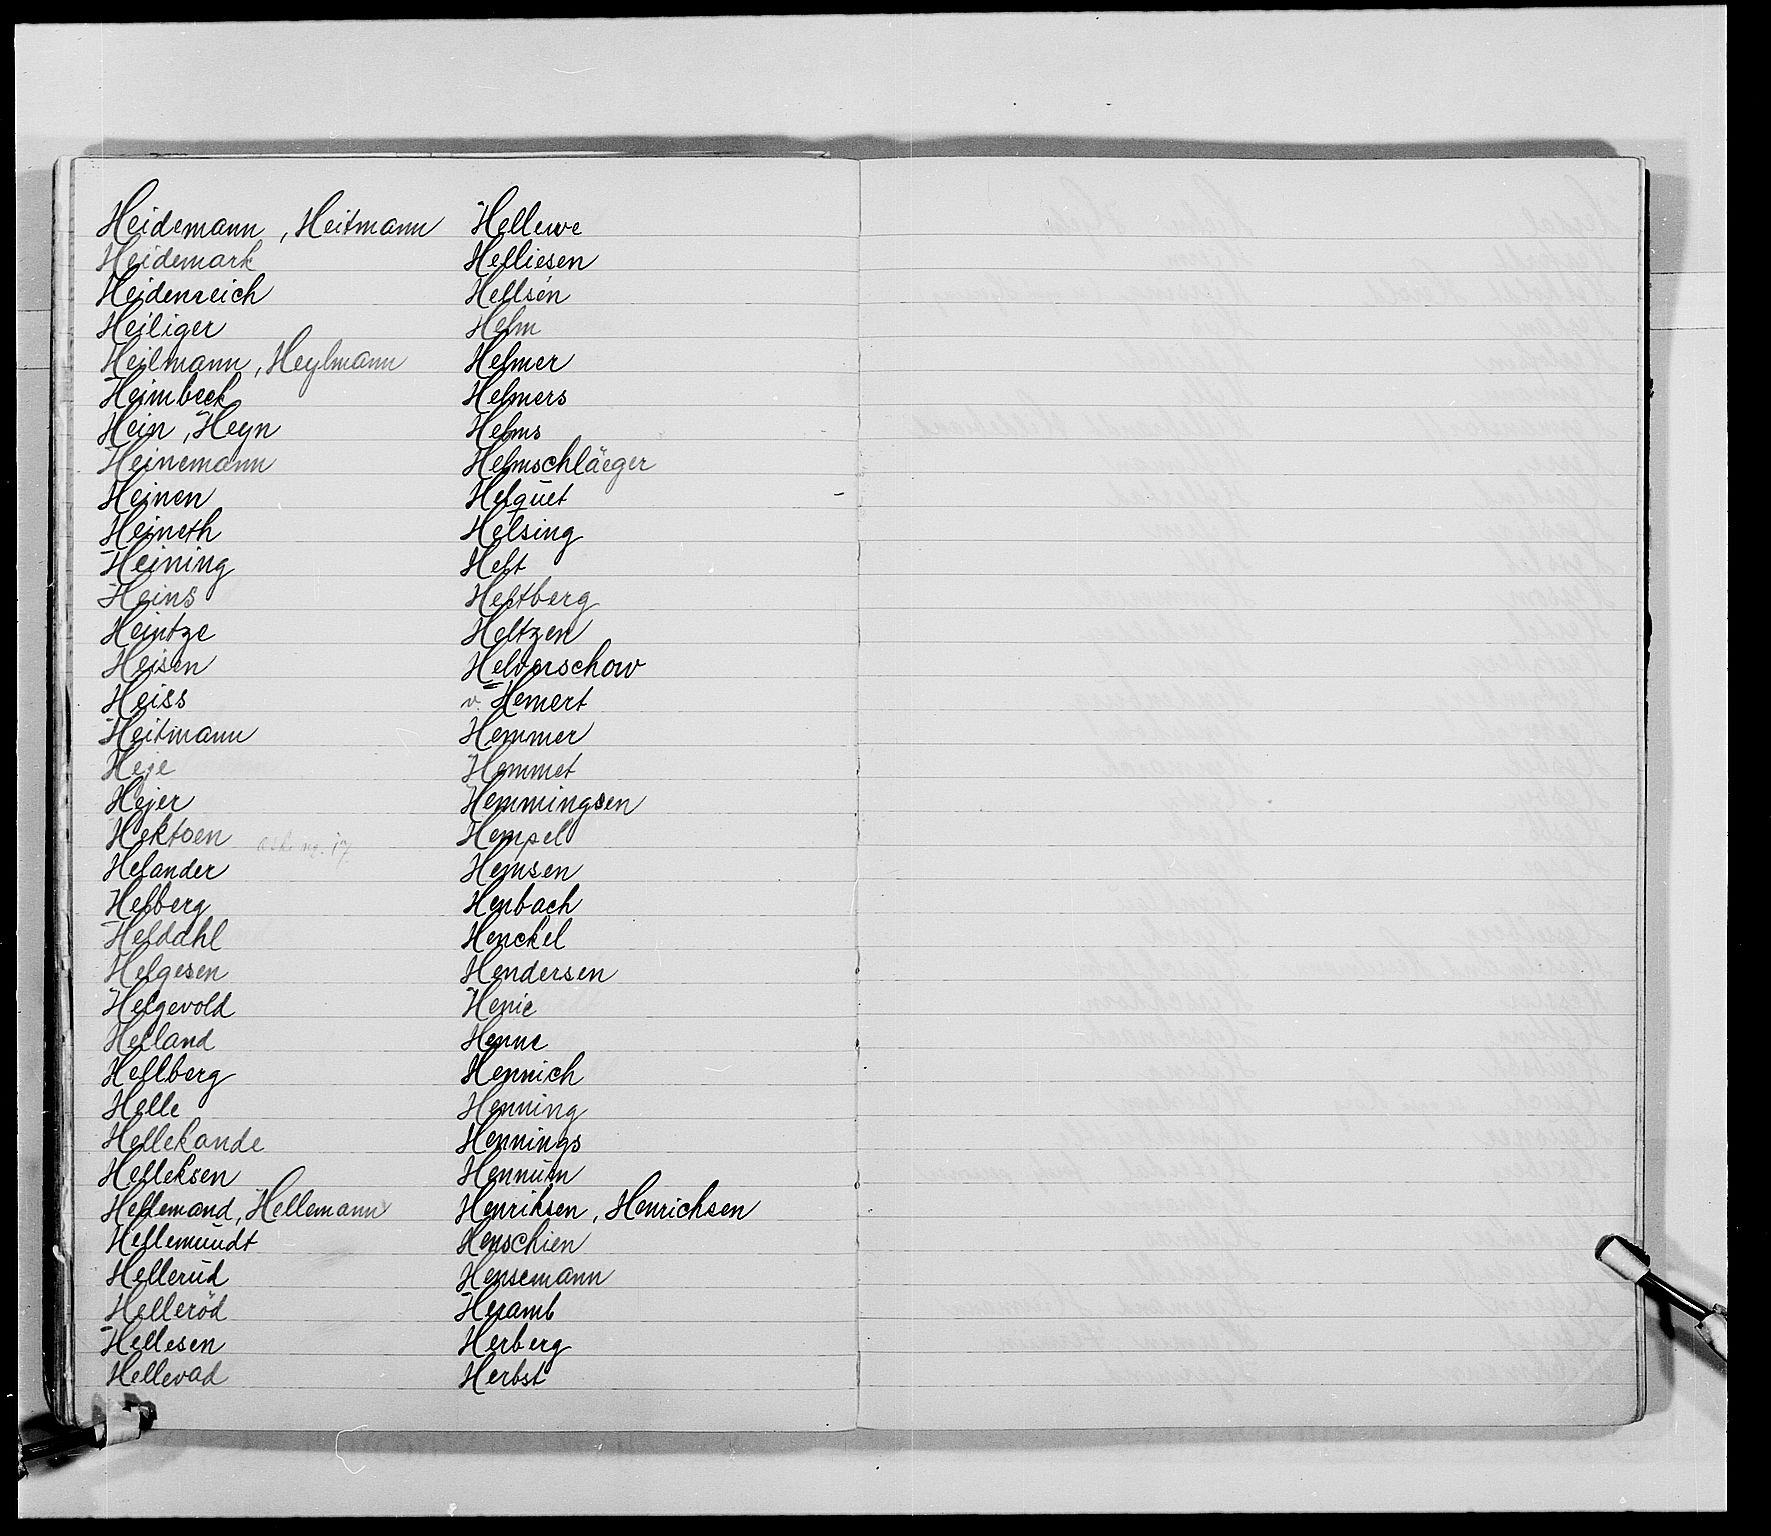 Heidemann, Heitmann
Heidemark
Heidenreich
Heiliger
Heilmann, Heylmann
Heimbeck
Hein, Heyn
Heinemann
Heinen
Heineth
Heining
Heins
Heintze
Heisen
Heiss
Heitmann
Heje
Hejer
Hektoen
Helander
Helberg
Heldahl
Helgesen
Helgevold
Helland
Hellberg
Helle
Hellekande
Helleksen
Hellemand, Hellemann
Hellemundt
Hellerud
Helleröd
Hellesen
Hellevad
Hellewe
Helliesen
Hellsén
Helm
Helmer
Helmers
Helms
Helmschläeger
Helquet
Helsing
Helt
Heltberg
Heltzen
Helverschow
v. Hemert
Hemmer
Hemmet
Hemmingsen
Hempel
Hemsen
Henbach
Henckel
Hendersen
Henie
Henne
Hennich
Henning
Hennings
Hennum
Henriksen, Henrichsen
Henschien
Hensemann
Heramb
Herberg
Herbst